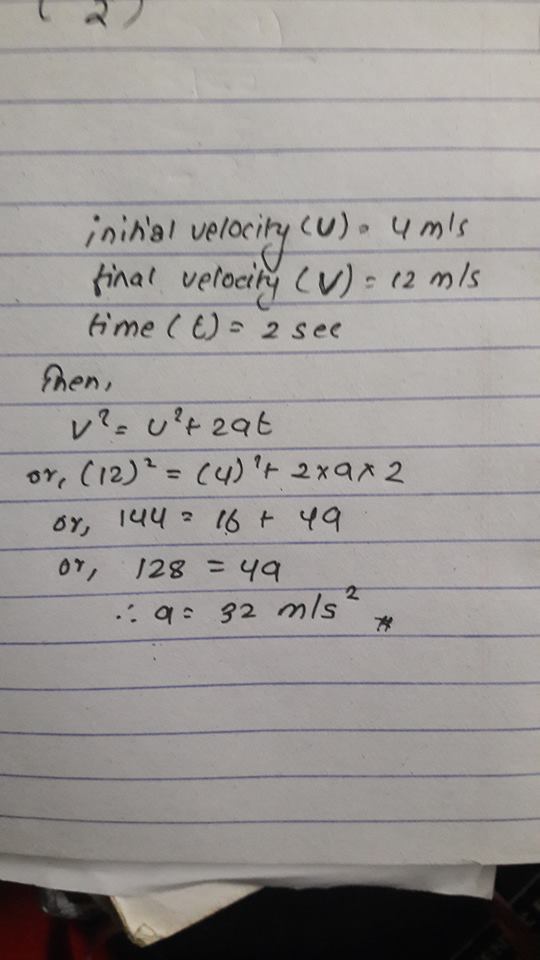 ( 2 )
initial velocity (u) = 4 m/s
final velocity (v) = 12 m/s
time (t) = 2 sec
Then,
v² = u² + 2at
or, (12)² = (4)² + 2×a×2
or, 144 = 16 + 4a
or, 128 = 4a
∴ a = 32 m/s² #